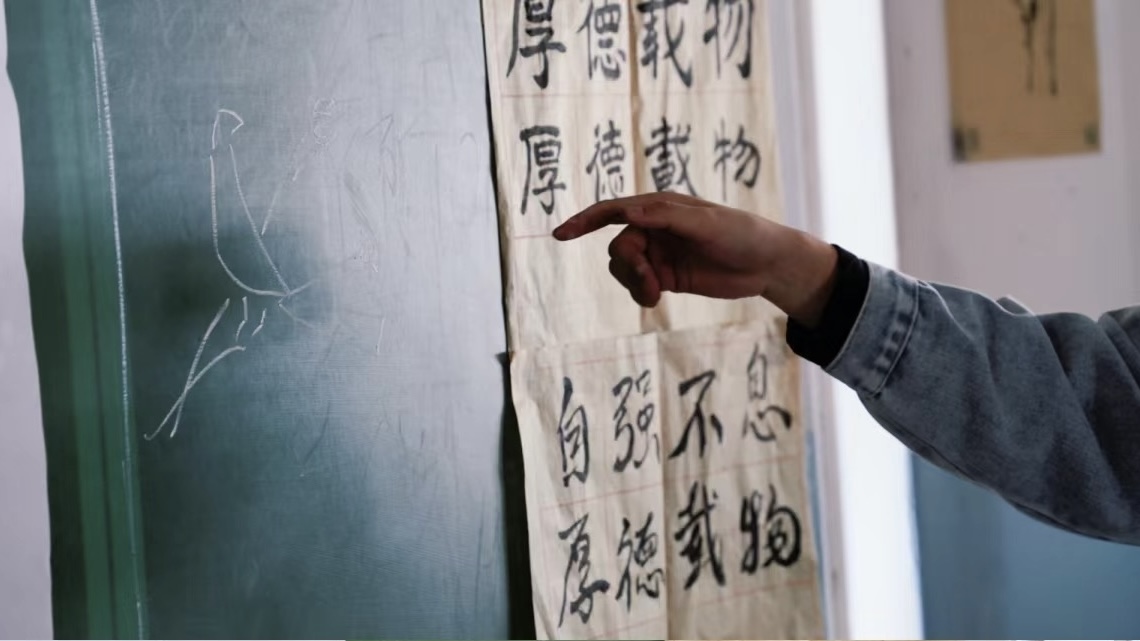 厚德载物
厚德載物
自强不息
厚德載物